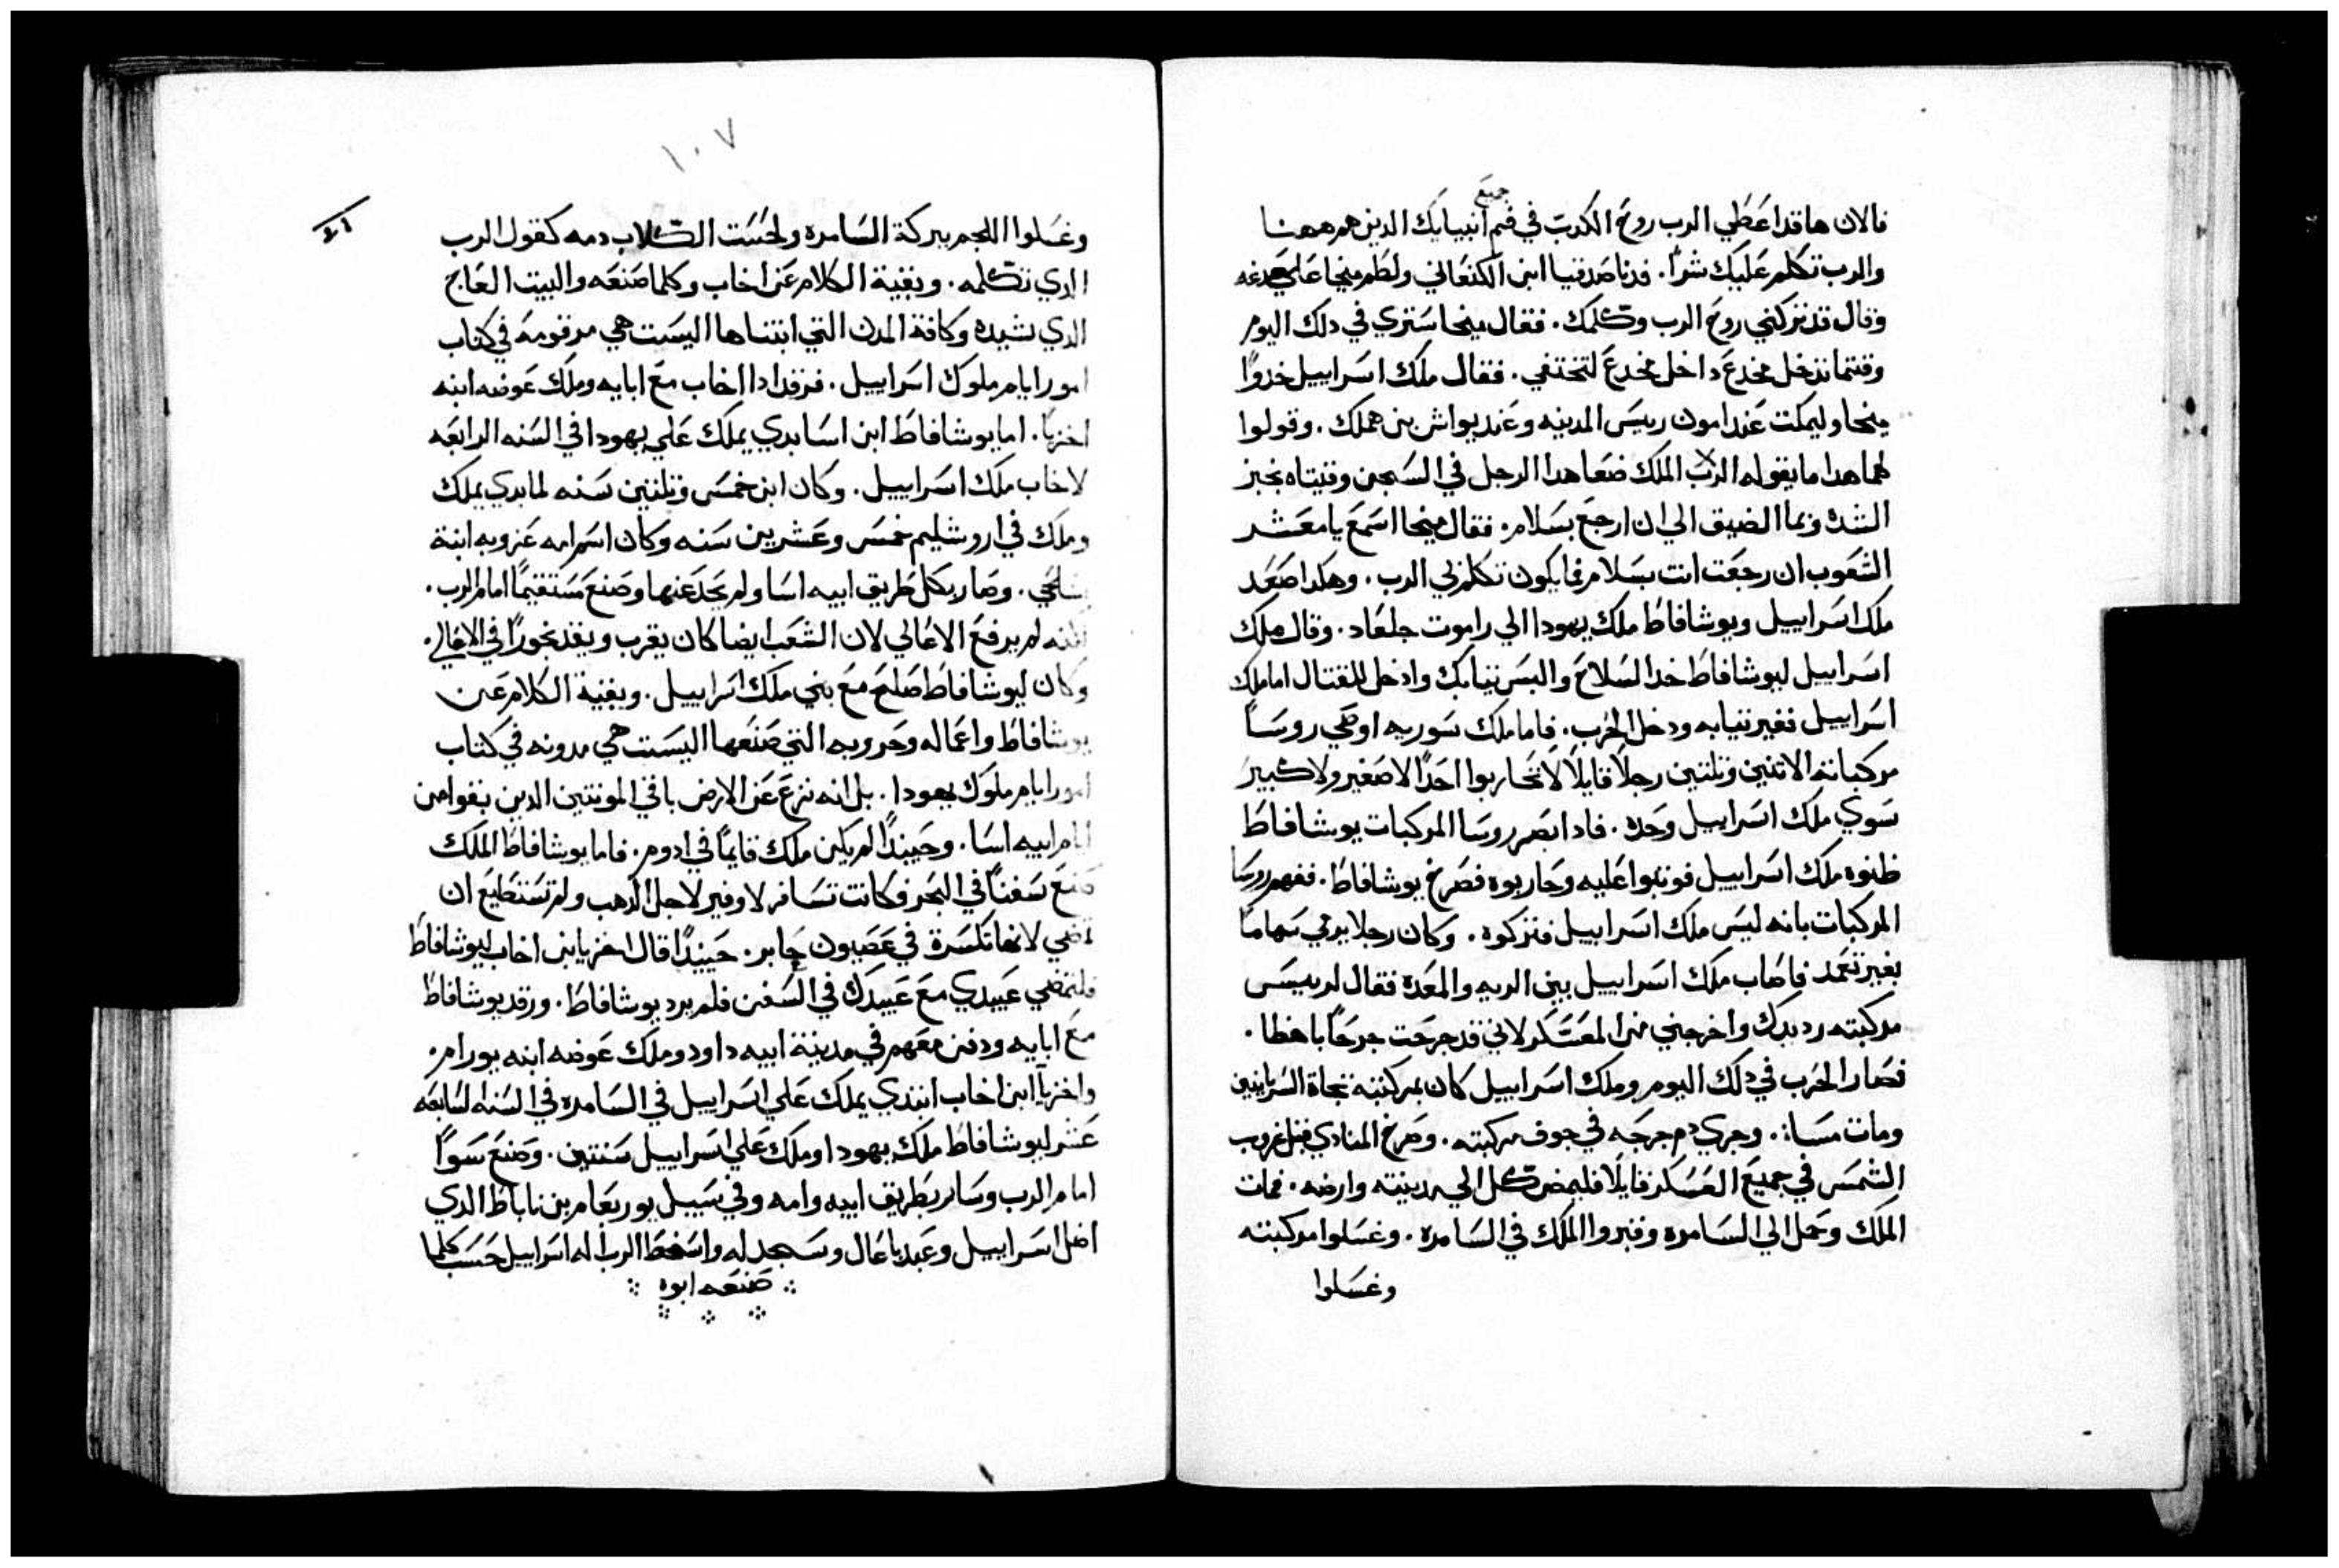 جميع
فالان هاقد اعطي الرب روح الكدب في فم انبيايك الدين هم ههنا
والرب تكلم عليك شرًا. فدنا صدقيا ابن الكنعاني ولطم ميخا علي صدغه
وقال قد تركني روح الرب وكلمك. فقال ميخا ستري في دلك اليوم
وقتما تدخل مخدع داخل مخدع لتختفي. فقال ملك اسراييل خدوا
ميخا وليمكت عند امون رييس المدينه وعند يواش بن هملك. وقولوا
لهما هدا ما يقوله الرب الملك ضعا هدا الرجل في السجن وقيتاه بخبز
الشده وبما الضيق الي ان ارجع بسلام. فقال ميخا اسمع يا معشر
الشعوب ان رجعت انت بسلام فما يكون تكلم بي الرب. وهكدا صعد
ملك اسراييل ويوشافاط ملك يهودا الي راموت جلعاد. وقال ملك
اسراييل ليوشافاط خد السلاح والبس تيابك وادخل للقتال اما ملك
اسراييل فغير تيابه ودخل الحرب. فاما ملك سوريه اوصي روسا
مركباته الاتنين وتلتين رجلًا قايلًا لا تحاربوا احدًا لا صغير ولا كبير
سوي ملك اسراييل وحده. فادا ابصر روسا المركبات يوشافاط
ظنوه ملك اسراييل فوتبوا عليه وحاربوه فصرخ يوشافاط. ففهم روسا
المركبات بانه ليس ملك اسراييل فتركوه. وكان رجلا يرمي سهامًا
بغير تعمد فاصاب ملك اسراييل بين الريه والمعده فقال لرييس
مركبته رد يدك واخرجني من المعسكر لاني قد جرحت جرحًا باهظا.
فصار الحرب في دلك اليوم وملك اسراييل كان بمركبته تجاة السريانيين
ومات مسا. وجري دم جرحه في جوف مركبته. وصرخ المنادي قبل غروب
الشمس في جميع العسكر قايلًا فليمض كل الي مدينته وارضه. فمات
الملك وحمل الي السامره وقبروا الملك في السامره. وغسلوا مركبته
وغسلوا
١٠٧
وغسلوا اللجم ببركة السامره ولحست الكلاب دمه كقول الرب
الدي تكلمه. وبقية الكلام عن اخاب وكلما صنعه والبيت العاج
الدي شيده وكافة المدن التي ابتناها اليست هي مرقومه في كتاب
امور ايام ملوك اسراييل. فرقد ادا اخاب مع ابايه وملك عوضه ابنه
اخزيا. اما يوشافاط ابن اسا بدي يملك علي يهودا في السنه الرابعه
لاخاب ملك اسراييل. وكان ابن خمس وتلتين سنه لما بدي يملك
وملك في اروشليم خمس وعشرين سنه وكان اسم امه عزوبه ابنة
شلحي. وصار بكل طريق ابيه اسا ولم يحد عنها وصنع مستقيمًا امام الرب.
لكنه لم يرفع الاعالي لان الشعب ايضا كان يقرب ويقد بخورًا في الاعالي.
وكان ليوشافاط صلح مع بني ملك اسراييل. وبقية الكلام عن
يوشافاط واعماله وحروبه التي صنعها اليست هي مدونه في كتاب
امور ايام ملوك يهودا. بل انه نزع عن الارض باقي المونتين الدين بقوا من
ايام ابيه اسا. وحينيدًا لم يكن ملك قايمًا في ادوم. فاما يوشافاط الملك
صنع سفنًا في البحر وكانت تسافر لاوفير لاجل الدهب ولم تستطيع ان
تمضي لانها تكسرة في عصيون جابر. حينيدًا قال اخزيا بن اخاب ليوشافاط
فلتمضي عبيدي مع عبيدك في السفن فلم يرد يوشافاط. ورقد يوشافاط
مع ابايه ودفن معهم في مدينة ابيه داود وملك عوضه ابنه يورام.
واخزيا ابن اخاب ابتدي يملك علي اسراييل في السامره في السنه السابعه
عشر ليوشافاط ملك يهودا وملك علي اسراييل سنتين. وصنع سوًا
امام الرب وسار بطريق ابيه وامه وفي سبيل يوربعام بن ناباط الدي
اضل اسراييل وعبد باعال وسجد له واسخط الرب اله اسراييل حسب كلما
صنعه ابوه